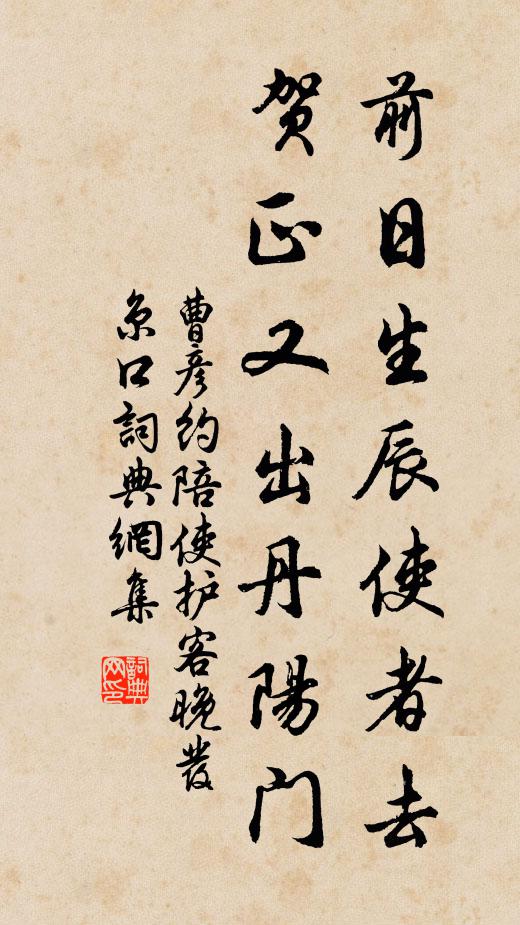 前日生辰使者去
贺正又出丹陽门
曹彦约陪使护客晚发
京口詞典網集
詞典网印